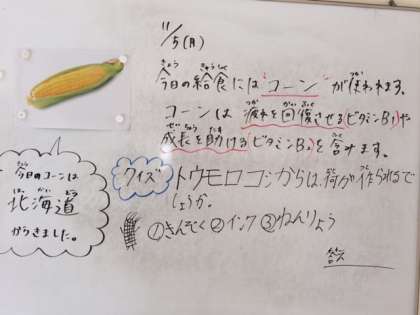 11/5(月)
今日の給食には"コーン"が使われます。
コーンは疲れを回復させるビタミンB₁や
成長を助けるビタミンB₂を含みます。
今日のコーンは
北海道
からきました。
クイズ
トウモロコシからは、何が作られるで
しょうか。
①きんぞく ②インク ③ねんりょう
答え